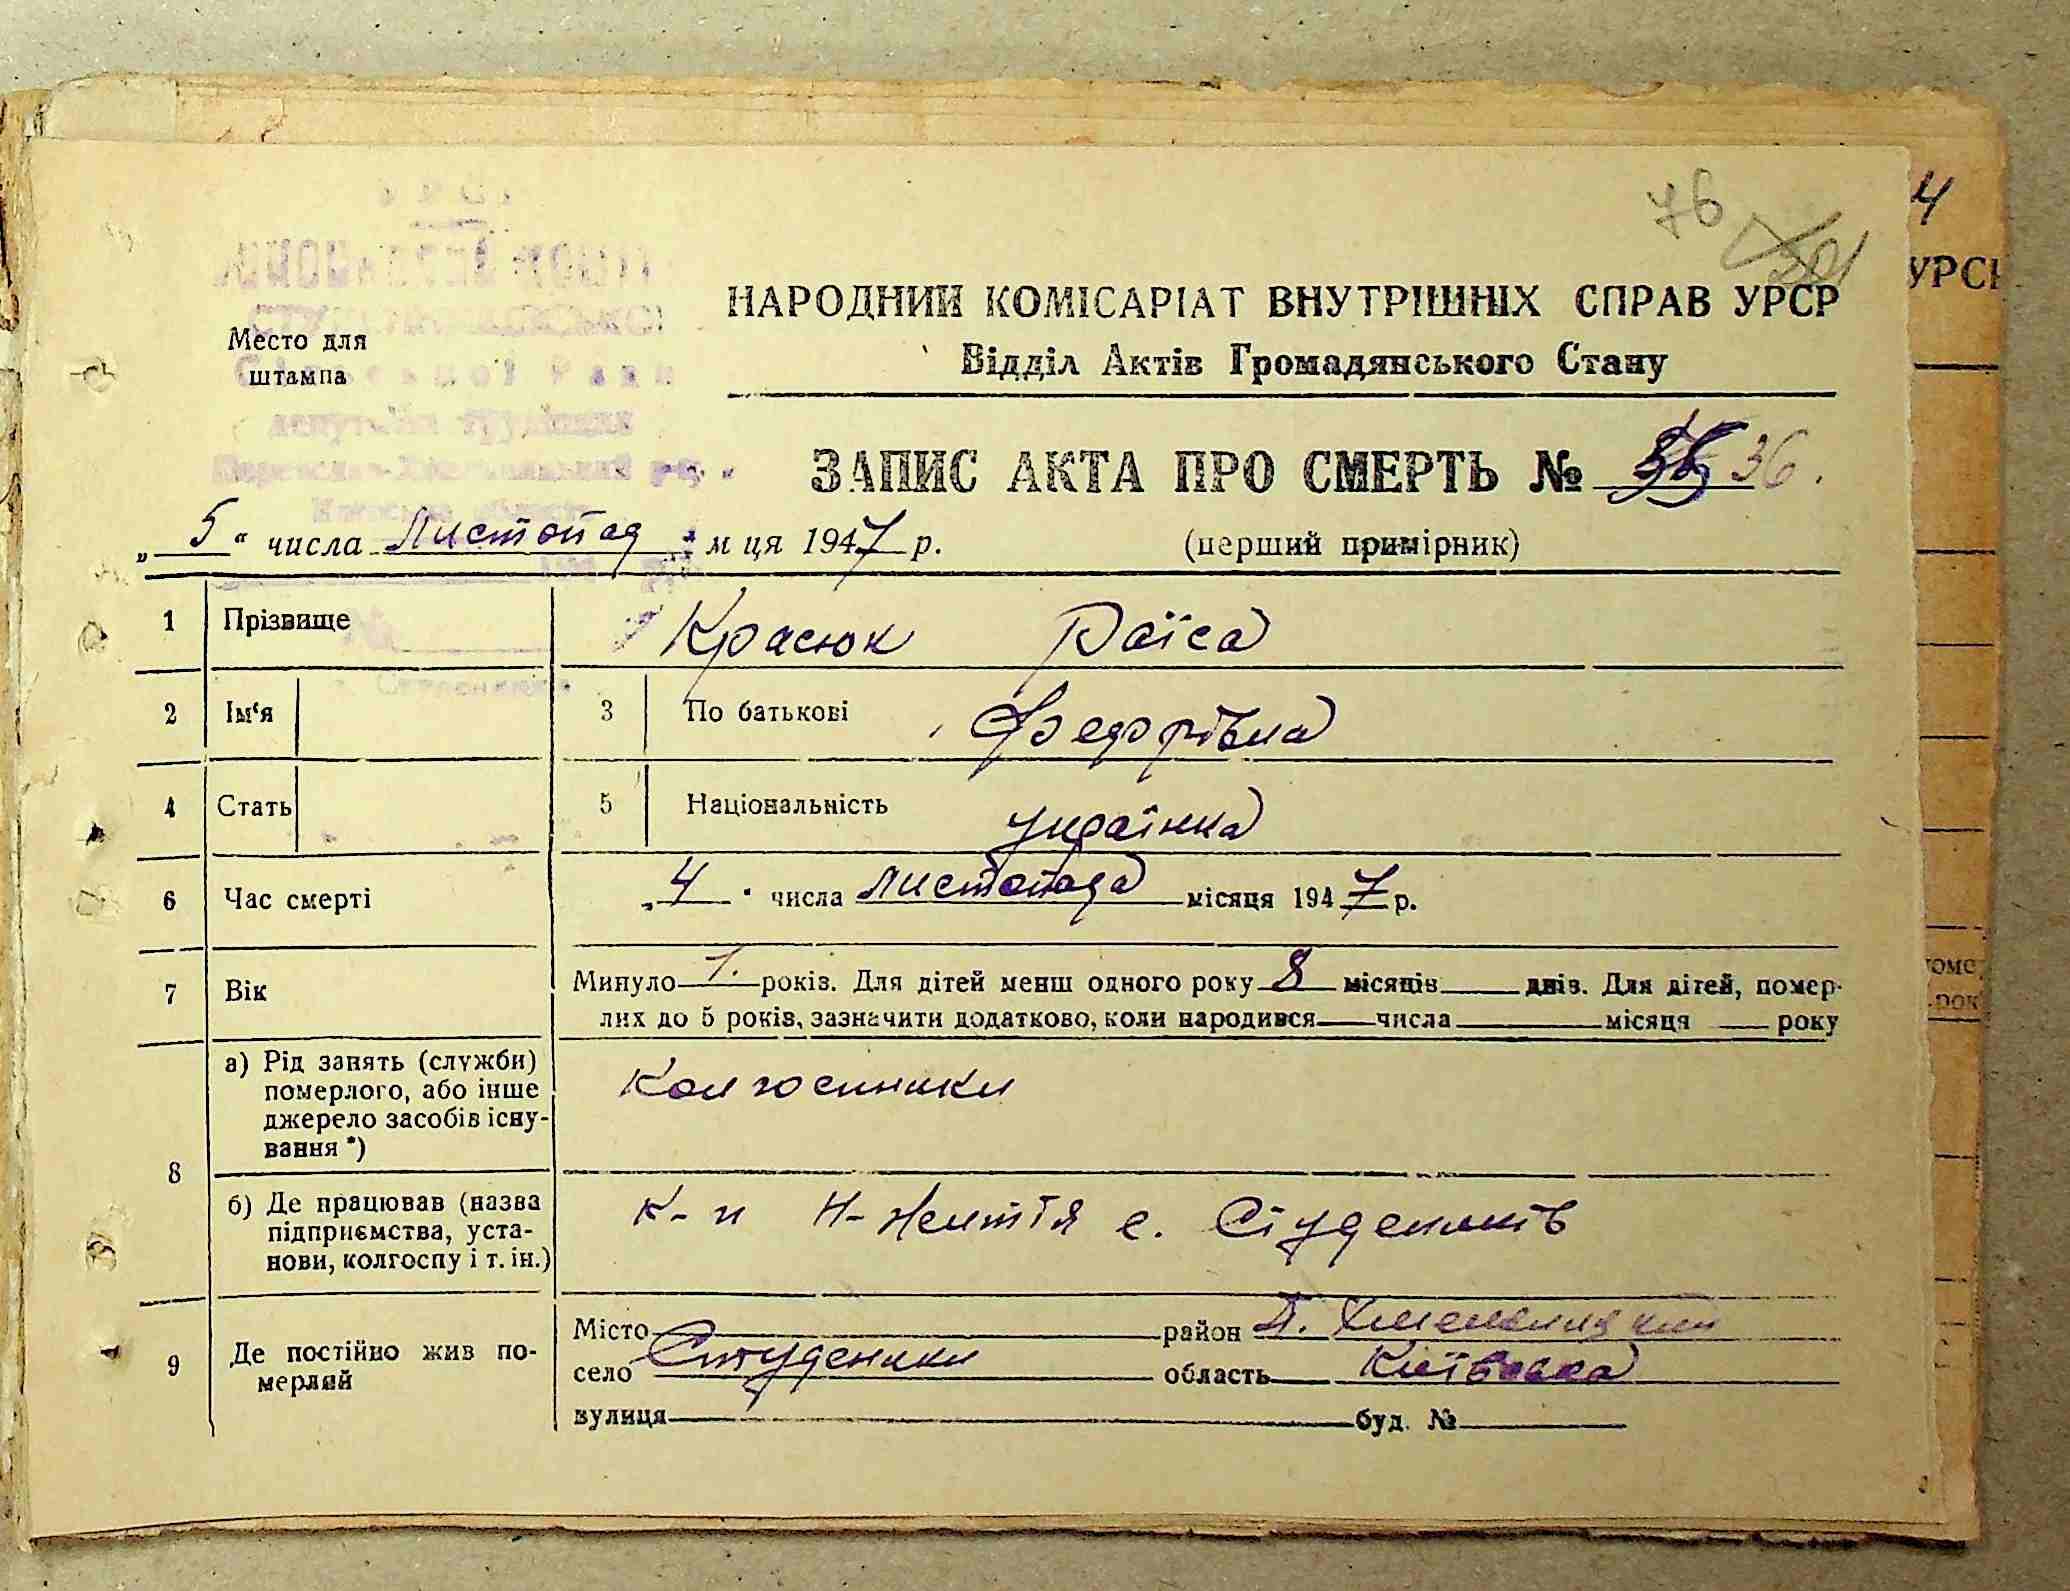 76
4
УРСР
НАРОДНИЙ КОМІСАРІАТ ВНУТРІШНІХ СПРАВ УРСР
Відділ Актів Громадянського Стану
Место для
штампа
Сільської Ради
депутатів трудящих
ЗАПИС АКТА ПРО СМЕРТЬ № 36.
„5“ числа Листопад м ця 1947 р. (перший примірник)
1 Прізвище Красюк Раїса
2 Ім‘я 3 По батькові Федорівна
4 Стать 5 Національність українка
6 Час смерті „4“ числа листопада місяця 1947 р.
7 Вік Минуло 1. років. Для дітей менш одного року 8 місяців днів. Для дітей, помер-
лих до 5 років, зазначити додатково, коли народився числа місяця року
8 а) Рід занять (службы) померлого, або інше джерело засобів існування *) Колгоспники
б) Де працював (назва підприємства, установи, колгоспу і т. ін.) К-п Н-життя с. Студеників
9 Де постійно жив померлий Місто район П. Хмельницький
село Студеники область Київська
вулиця буд. №